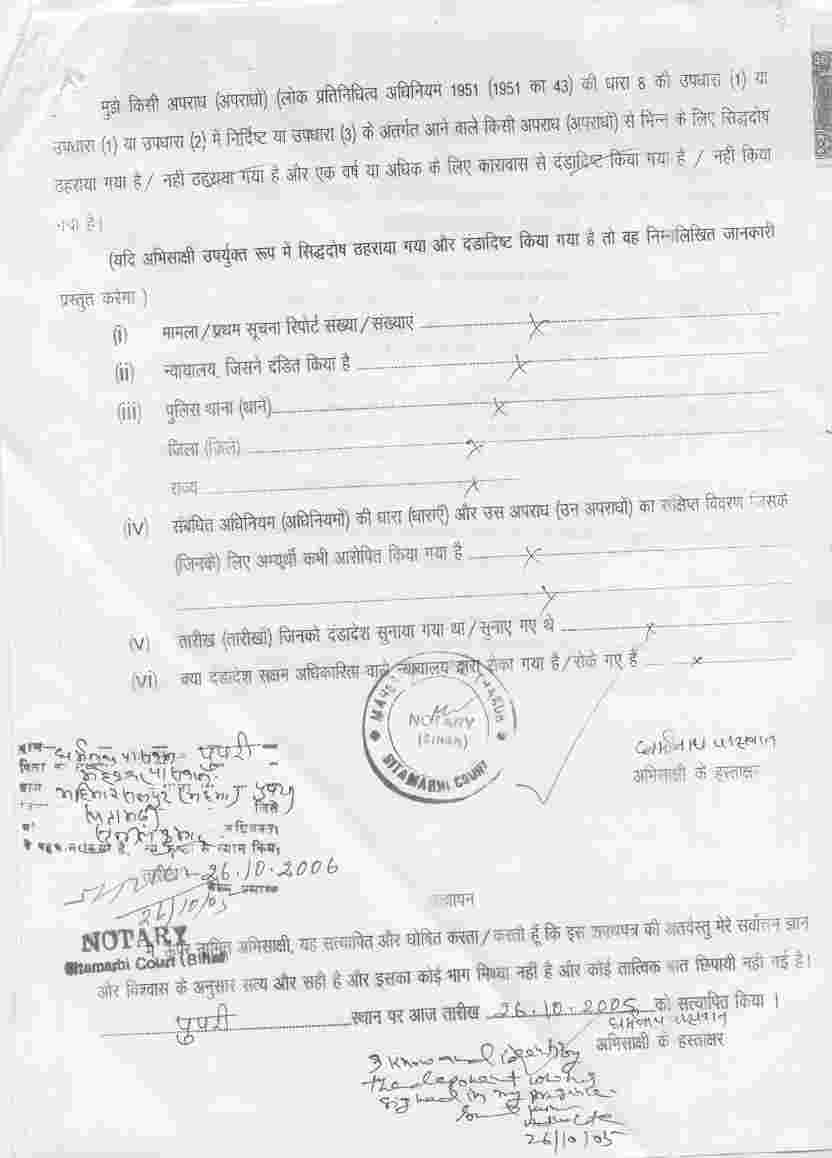 मुझे किसी अपराध (अपराधों) (लोक प्रतिनिधित्व अधिनियम 1951 (1951 का 43) की धारा 8 की उपधारा (1) या
उपधारा (1) या उपधारा (2) में निर्दिष्ट या उपधारा (3) के अंतर्गत आने वाले किसी अपराध (अपराधों) से भिन्न के लिए सिद्धदोष
ठहराया गया है / नहीं ठहराया गया है और एक वर्ष या अधिक के लिए कारावास से दंडादिष्ट किया गया है / नहीं किया
गया है।
(यदि अभिसाक्षी उपर्युक्त रूप में सिद्धदोष ठहराया गया और दंडादिष्ट किया गया है तो वह निम्नलिखित जानकारी
प्रस्तुत करेगा )
(i) मामला/प्रथम सूचना रिपोर्ट संख्या/संख्याएं x
(ii) न्यायालय, जिसने दंडित किया है x
(iii) पुलिस थाना (थाने) x
जिला (जिले) x
राज्य x
(iv) संबंधित अधिनियम (अधिनियमों) की धारा (धाराएं) और उस अपराध (उन अपराधों) का संक्षिप्त विवरण जिसके
(जिनके) लिए अभ्यर्थी कभी आरोपित किया गया है x
x
(v) तारीख (तारीखों) जिनको दंडादेश सुनाया गया था/सुनाए गए थे x
(vi) क्या दंडादेश सक्षम अधिकारिता वाले न्यायालय द्वारा रोका गया है/रोके गए हैं x
NOTARY
(BIHAR)
SITAMARHI COURT
पुपरी
पासवान
अभिसाक्षी के हस्ताक्षर
26.10.2006
26/10/05
सत्यापन
NOTARY
Sitamarhi Court (Bihar)
अभिसाक्षी, यह सत्यापित और घोषित करता/करती हूँ कि इस शपथपत्र की अंतर्वस्तु मेरे सर्वोत्तम ज्ञान
और विश्वास के अनुसार सत्य और सही है और इसका कोई भाग मिथ्या नहीं है और कोई तात्विक बात छिपायी नहीं गई है।
पुपरी स्थान पर आज तारीख 26.10.2005 को सत्यापित किया ।
पासवान
अभिसाक्षी के हस्ताक्षर
I know and identify
the deponent
signed in my presence
26/10/05